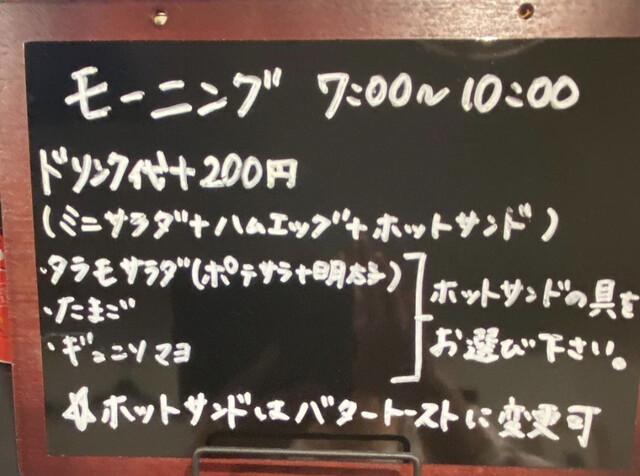 モーニング 7:00〜10:00
ドリンク代+200円
(ミニサラダ+ハムエッグ+ホットサンド)
・タラモサラダ(ポテサラ+明太子)
・たまご
・ギョニソマヨ
ホットサンドの具を
お選び下さい。
☆ホットサンドはバタートーストに変更可